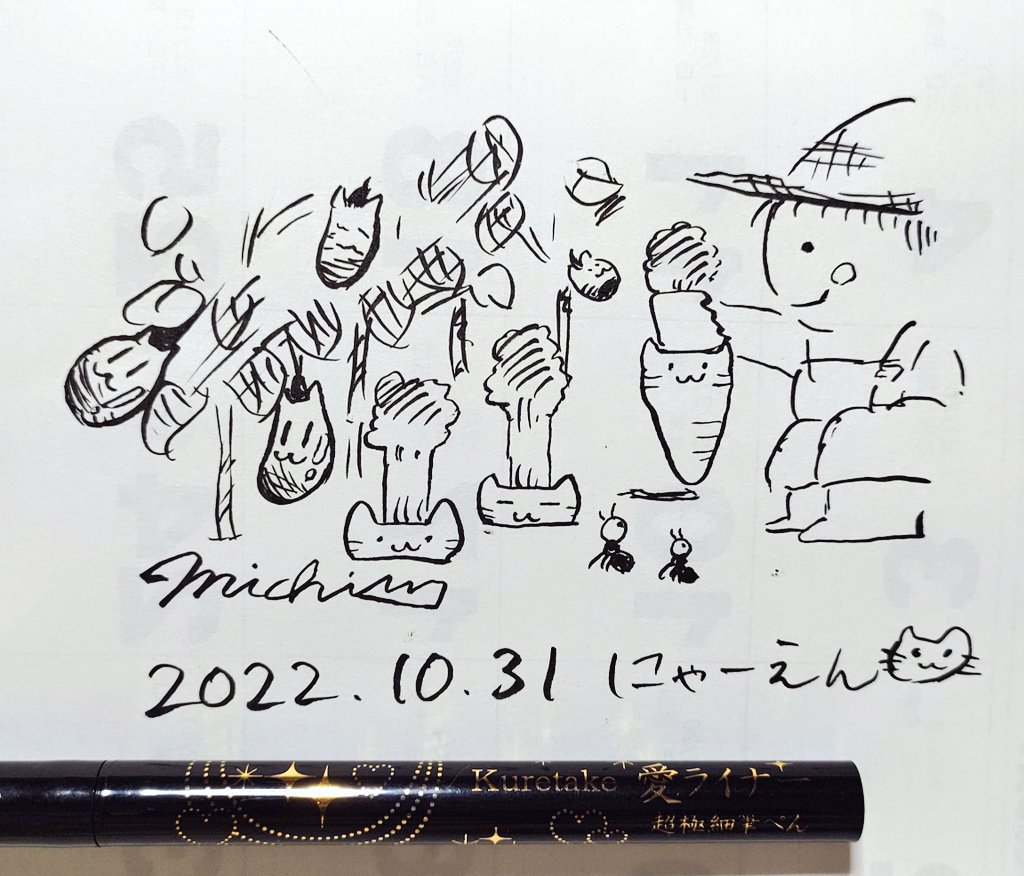 Michi
2022.10.31 にゃーえん
Kuretake 愛ライナー
超極細筆ぺん